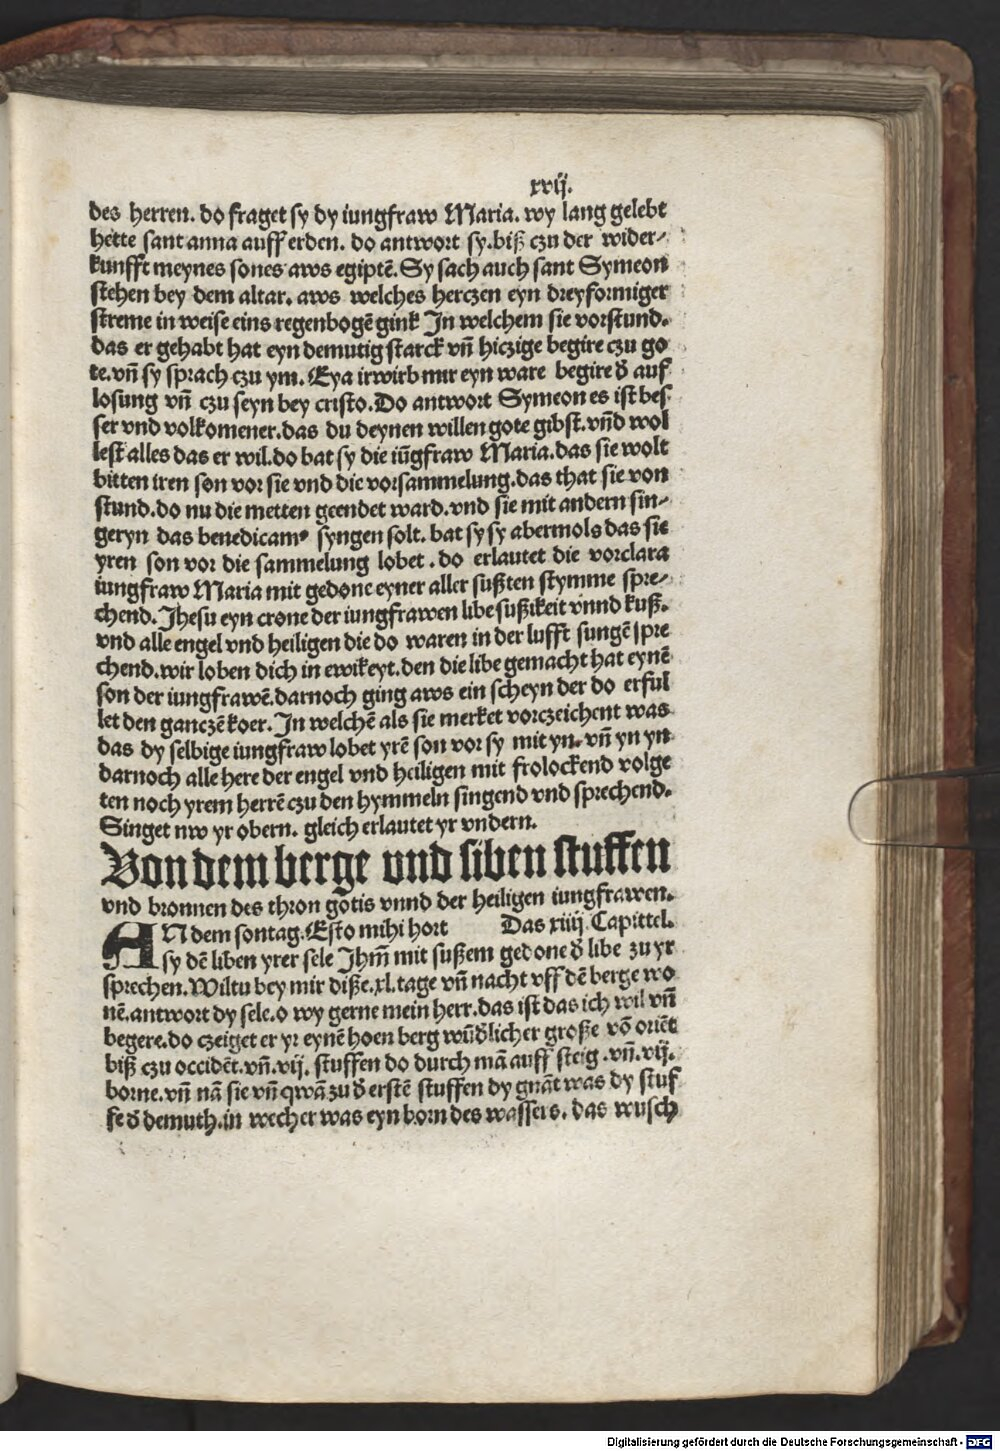 xvij.
des herren. do fraget sy dy iungfraw Maria. wy lang gelebt
hette sant anna auff erden. do antwort sy. biß czu der wider⸗
kunfft meynes sones aws egiptē. Sy sach auch sant Symeon
stehen bey dem altar. aws welches herczen eyn dreyformiger
streme in weise eins regenbogē gink In welchem sie vorstund.
das er gehabt hat eyn demutig starck vn̄ hiczige begire czu go
te. vn̄ sy sprach czu ym. Eya irwirb mir eyn ware begire d̕ auf
losung vn̄ czu seyn bey cristo. Do antwort Symeon es ist bes
ser vnd volkomener. das du deynen willen gote gibst. vn̄d wol
lest alles das er wil. do bat sy die iūgfraw Maria. das sie wolt
bitten iren son vor sie vnd die vorsammelung. das that sie von
stund. do nu die metten geendet ward. vnd sie mit andern sin⸗
geryn das benedicamꝰ syngen solt. bat sy sy abermols das sie
yren son vor die sammelung lobet. do erlautet die vorclara
iungfraw Maria mit gedone eyner aller sußten stymme spre⸗
chend. Jhesu eyn crone der iungfrawen libe sußikeit vnnd kuß.
vnd alle engel vnd heiligen die do waren in der lufft sungē spre
chend. wir loben dich in ewikeyt. den die libe gemacht hat eynē
son der iungfrawē. darnoch ging aws ein scheyn der do erful
let den ganczē koer. In welchē als sie merket vorczeichent was
das dy selbige iungfraw lobet yrē son vor sy mit yn. vn̄ yn yn
darnoch alle here der engel vnd heiligen mit frolockend volge
ten noch yrem herrē czu den hymmeln singend vnd sprechend.
Singet nw yr obern. gleich erlautet yr vndern.
Von dem berge und siben stuffen
vnd bronnen des thron gotis vnnd der heiligen iungfrawen.
AN dem sontag. Esto mihi hort Das xiiij Capittel.
sy dē liben yrer sele Jhm̄ mit sußem gedone d̕ libe zu yr
sprechen. Wiltu bey mir diße. xl. tage vn̄ nacht vff dē berge wo
nē. antwort dy sele. o wy gerne mein herr. das ist das ich wil vn̄
begere. do czeiget er yr eynē hoen berg wūd̕licher große vō oriēt
biß czu occidēt. vn̄. vij. stuffen do durch mā auff steig. vn̄. vij.
borne. vn̄ nā sie vn̄ qwā zu d̕ erstē stuffen dy gnāt was dy stuf
fe d̕ demuth. in wecher was eyn born des wassers. das wusch
Digitalisierung gefördert durch die Deutsche Forschungsgemeinschaft - DFG